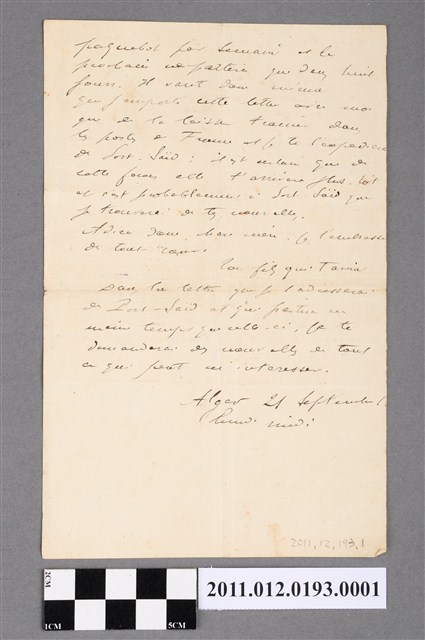 paquebot par semaine et le
prochain ne partira que dans huit
jours. Il vaut donc mieux
que j'emporte cette lettre avec moi
que de la laisser traîner dans
les postes de France et je te l'expédierai
de Port-Saïd : il est certain que de
cette façon elle t'arrivera plus tôt
et c'est probablement à Port Saïd que
je trouverai de tes nouvelles.
Adieu donc, chère mère. Je t'embrasse
de tout cœur.
Ton fils qui t'aime
Dans la lettre que je t'adresserai
de Port-Saïd et qui partira en
même temps que celle-ci, je te
demanderai des nouvelles de tout
ce qui peut m'intéresser.
Alger 21 Septembre
midi
2011.12.193.1
2CM
1CM
5CM
2011.012.0193.0001